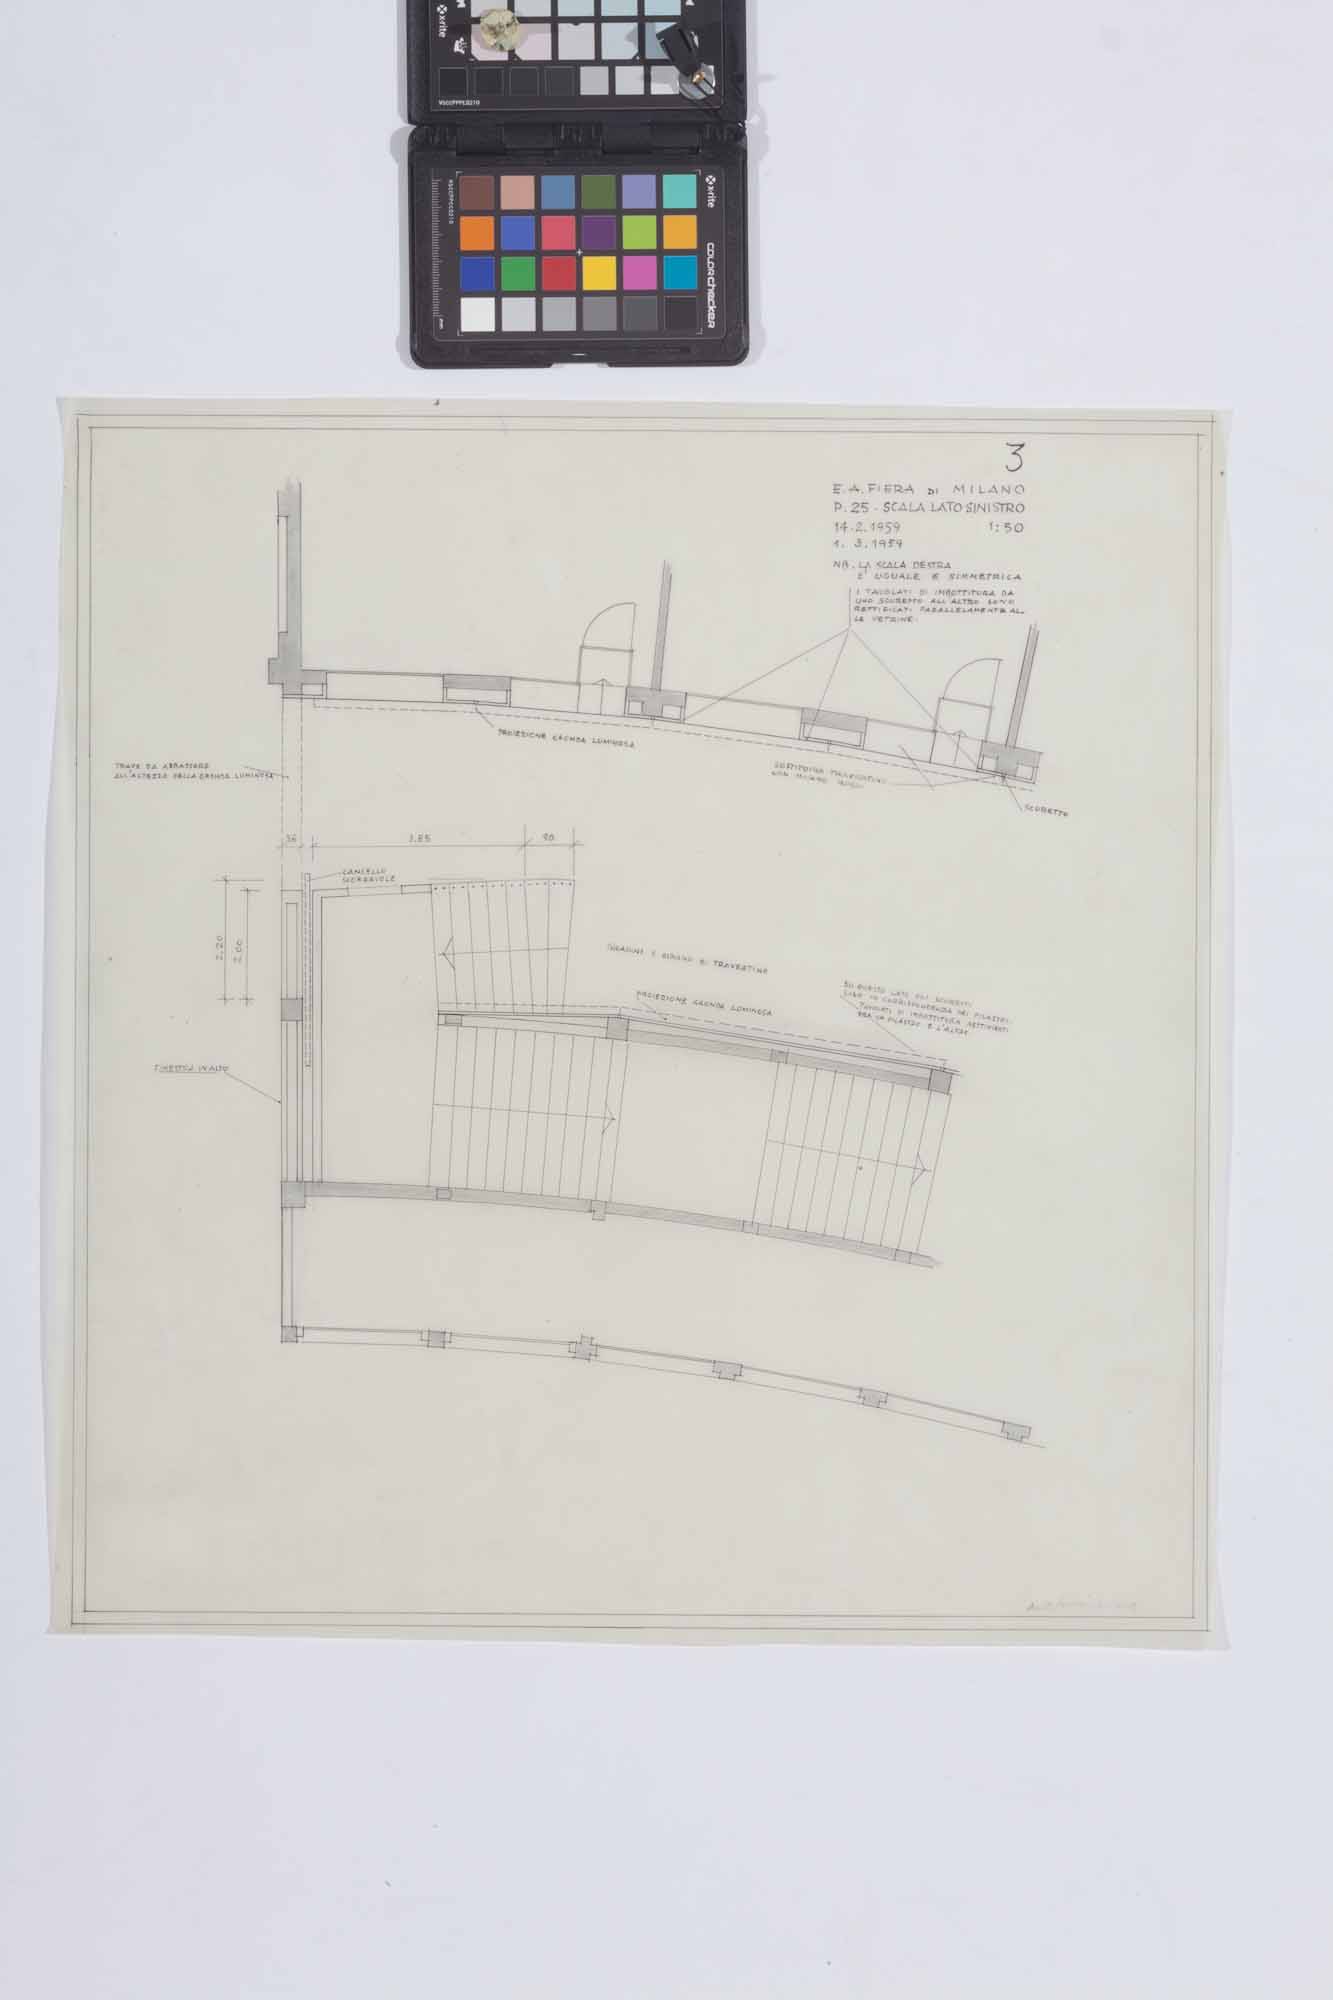 x-rite
VSCCPPPL0210
VSCCPPCC0210
x-rite
colorchecker
mm
3
E.A. FIERA DI MILANO
P. 25 - SCALA LATO SINISTRO
14.2.1959 1:50
1. 3. 1959
NB. LA SCALA DESTRA
E' UGUALE E SIMMETRICA
I TAVOLATI DI IMBOTTITURA DA
UNO SCURETTO ALL'ALTRO SONO
RETTIFICATI PARALLELAMENTE AL-
LE VETRINE.
PROIEZIONE GRONDA LUMINOSA
TRAVE DA ABBASSARE
ALL'ALTEZZA DELLA GRONDA LUMINOSA
SCURETTO
36 3.85 90
CANCELLO
SCORREVOLE
2.20
2.00
DI TRAVERTINO
PROIEZIONE GRONDA LUMINOSA
SU QUESTO LATO GLI SCURETTI
SOLO IN CORRISPONDENZA DEI PILASTRI.
TAVOLATI DI IMBOTTITURA RETTIFICATI
TRA UN PILASTRO E L'ALTRO
FINESTRA IN ALTO